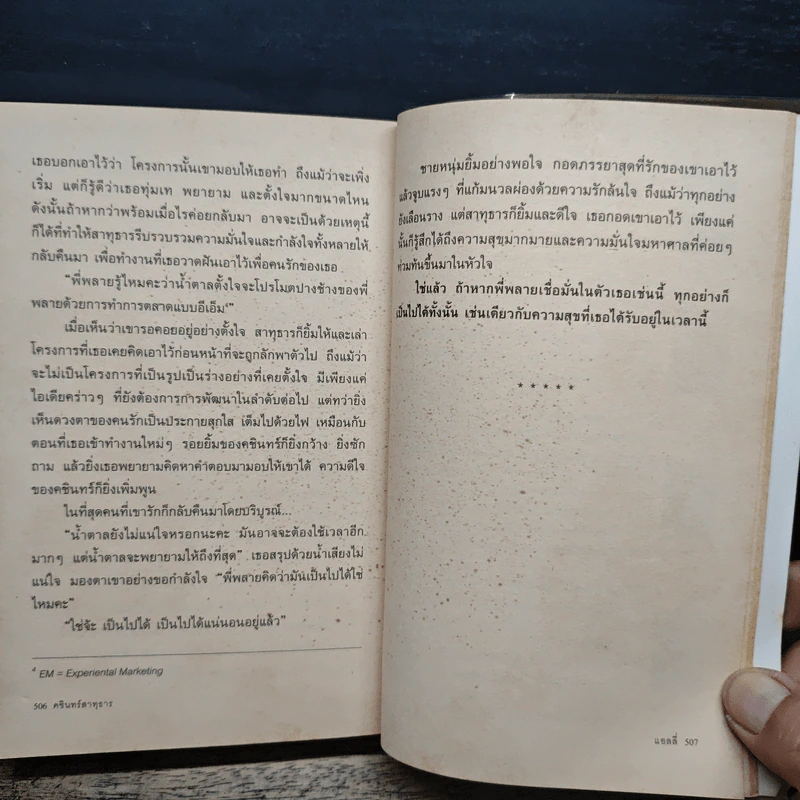 เธอบอกเอาไว้ว่า โครงการนั้นเขามอบให้เธอทำ ถึงแม้ว่าจะเพิ่ง
เริ่ม แต่ก็รู้ดีว่าเธอทุ่มเท พยายาม และตั้งใจมากขนาดไหน
ดังนั้นถ้าหากว่าพร้อมเมื่อไรค่อยกลับมา อาจจะเป็นด้วยเหตุนี้
ก็ได้ที่ทำให้สาทุธารรีบรวบรวมความมั่นใจและกำลังใจทั้งหลายให้
กลับคืนมา เพื่อทำงานที่เธอวาดฝันเอาไว้เพื่อคนรักของเธอ
“พี่พลายรู้ไหมคะว่าน้ำตาลตั้งใจจะโปรโมตปางช้างของพี่
พลายด้วยการทำการตลาดแบบอีเอ็ม⁴”
เมื่อเห็นว่าเขารอคอยอยู่อย่างตั้งใจ สาทุธารก็ยิ้มให้และเล่า
โครงการที่เธอเคยคิดเอาไว้ก่อนหน้าที่จะถูกลักพาตัวไป ถึงแม้ว่า
จะไม่เป็นโครงการที่เป็นรูปเป็นร่างอย่างที่เคยตั้งใจ มีเพียงแค่
ไอเดียคร่าวๆ ที่ยังต้องการการพัฒนาในลำดับต่อไป แต่ทว่ายิ่ง
เห็นดวงตาของคนรักเป็นประกายสุกใส เต็มไปด้วยไฟ เหมือนกับ
ตอนที่เธอเข้าทำงานใหม่ๆ รอยยิ้มของคชินทร์ก็ยิ่งกว้าง ยิ่งซัก
ถาม แล้วยิ่งเธอพยายามคิดหาคำตอบมามอบให้เขาได้ ความดีใจ
ของคชินทร์ก็ยิ่งเพิ่มพูน
ในที่สุดคนที่เขารักก็กลับคืนมาโดยบริบูรณ์...
“น้ำตาลยังไม่แน่ใจหรอกนะคะ มันอาจจะต้องใช้เวลาอีก
มากๆ แต่น้ำตาลจะพยายามให้ถึงที่สุด” เธอสรุปด้วยน้ำเสียงไม่
แน่ใจ มองตาเขาอย่างขอกำลังใจ “พี่พลายคิดว่ามันเป็นไปได้ใช่
ไหมคะ”
“ใช่จ้ะ เป็นไปได้ เป็นไปได้แน่นอนอยู่แล้ว”
⁴ EM = Experiental Marketing
506 คชินทร์สาทุธาร
ชายหนุ่มยิ้มอย่างพอใจ กอดภรรยาสุดที่รักของเขาเอาไว้
แล้วจูบแรงๆ ที่แก้มนวลผ่องด้วยความรักล้นใจ ถึงแม้ว่าทุกอย่าง
ยังเลือนราง แต่สาทุธารก็ยิ้มและดีใจ เธอกอดเขาเอาไว้ เพียงแค่
นั้นก็รู้สึกได้ถึงความสุขมากมายและความมั่นใจมหาศาลที่ค่อยๆ
ท่วมท้นขึ้นมาในหัวใจ
ใช่แล้ว ถ้าหากพี่พลายเชื่อมั่นในตัวเธอเช่นนี้ ทุกอย่างก็
เป็นไปได้ทั้งนั้น เช่นเดียวกับความสุขที่เธอได้รับอยู่ในเวลานี้
* * * * *
แอลลี่ 507